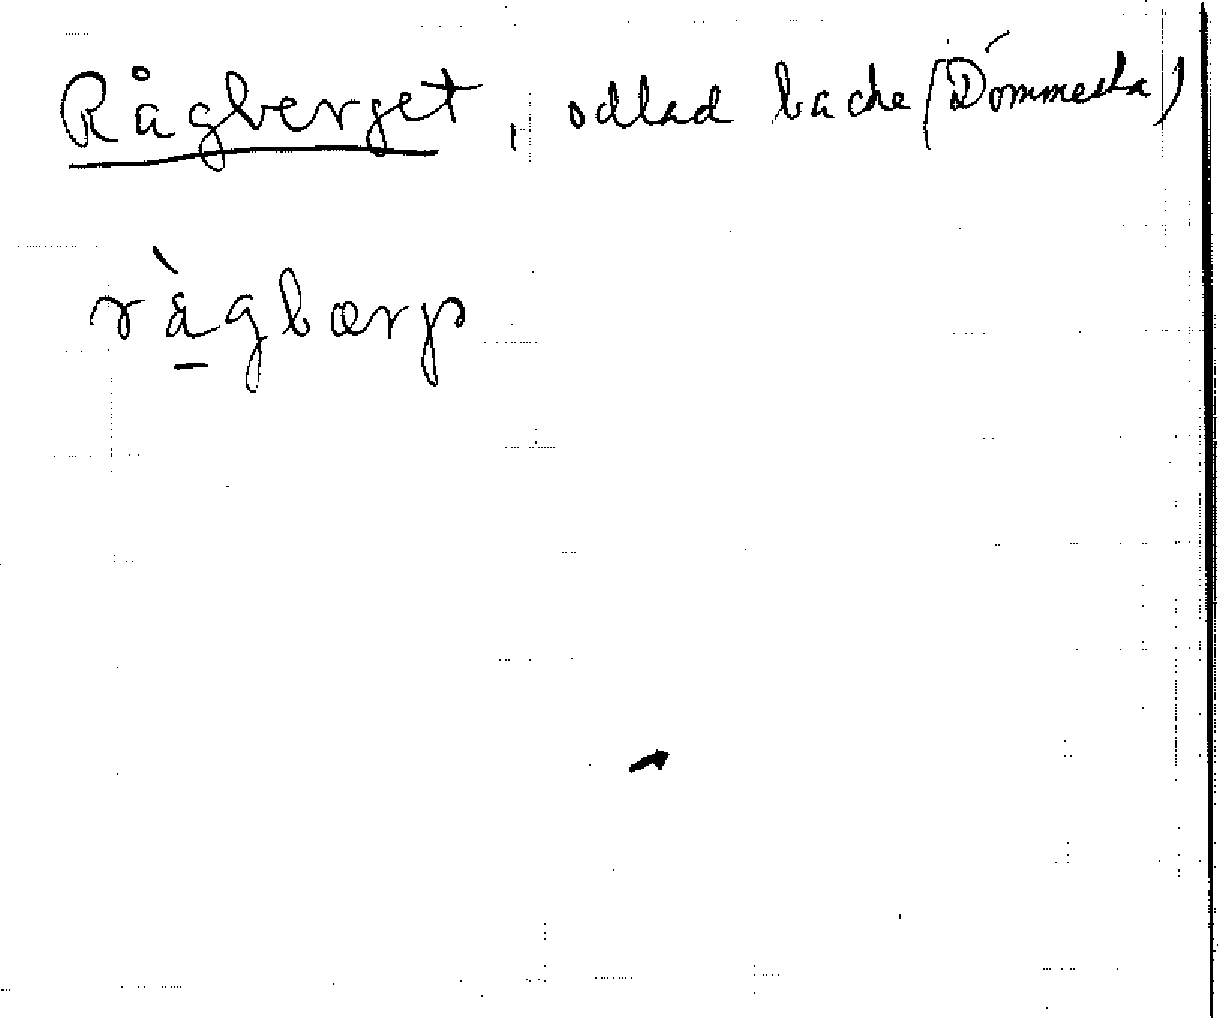 Rågberget, odlad backe (Dömmesta)
rågbærjə